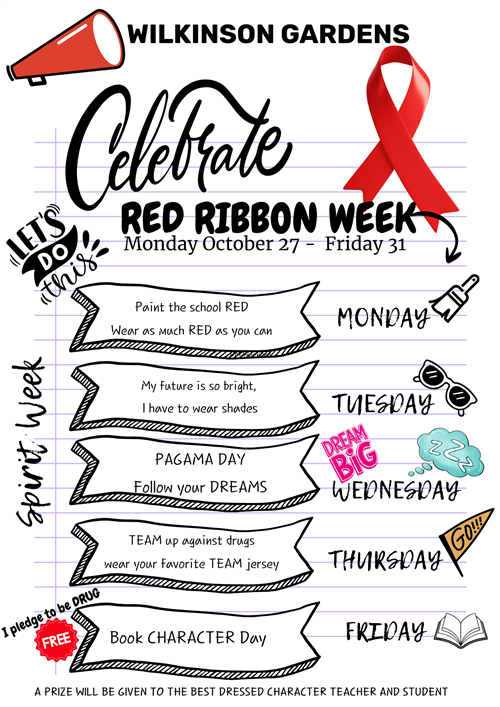 WILKINSON GARDENS
Celebrate
RED RIBBON WEEK
Monday October 27 - Friday 31
LET'S
DO
this
Spirit Week
Paint the school RED
Wear as much RED as you can
MONDAY
My future is so bright,
I have to wear shades
TUESDAY
PAGAMA DAY
Follow your DREAMS
DREAM
BiG
ZZZ
WEDNESDAY
TEAM up against drugs
wear your favorite TEAM jersey
THURSDAY
GO!!!
I pledge to be DRUG
FREE
Book CHARACTER Day
FRIDAY
A PRIZE WILL BE GIVEN TO THE BEST DRESSED CHARACTER TEACHER AND STUDENT